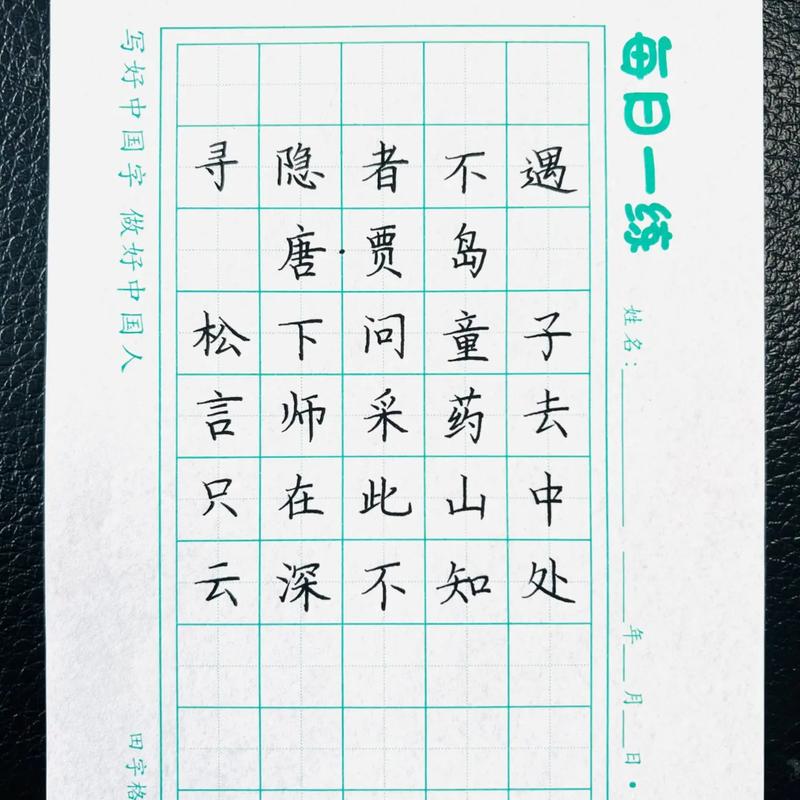 每日一练
姓名：
年 月 日
寻隐者不遇
唐·贾岛
松下问童子
言师采药去
只在此山中
云深不知处
写好中国字 做好中国人
田字格